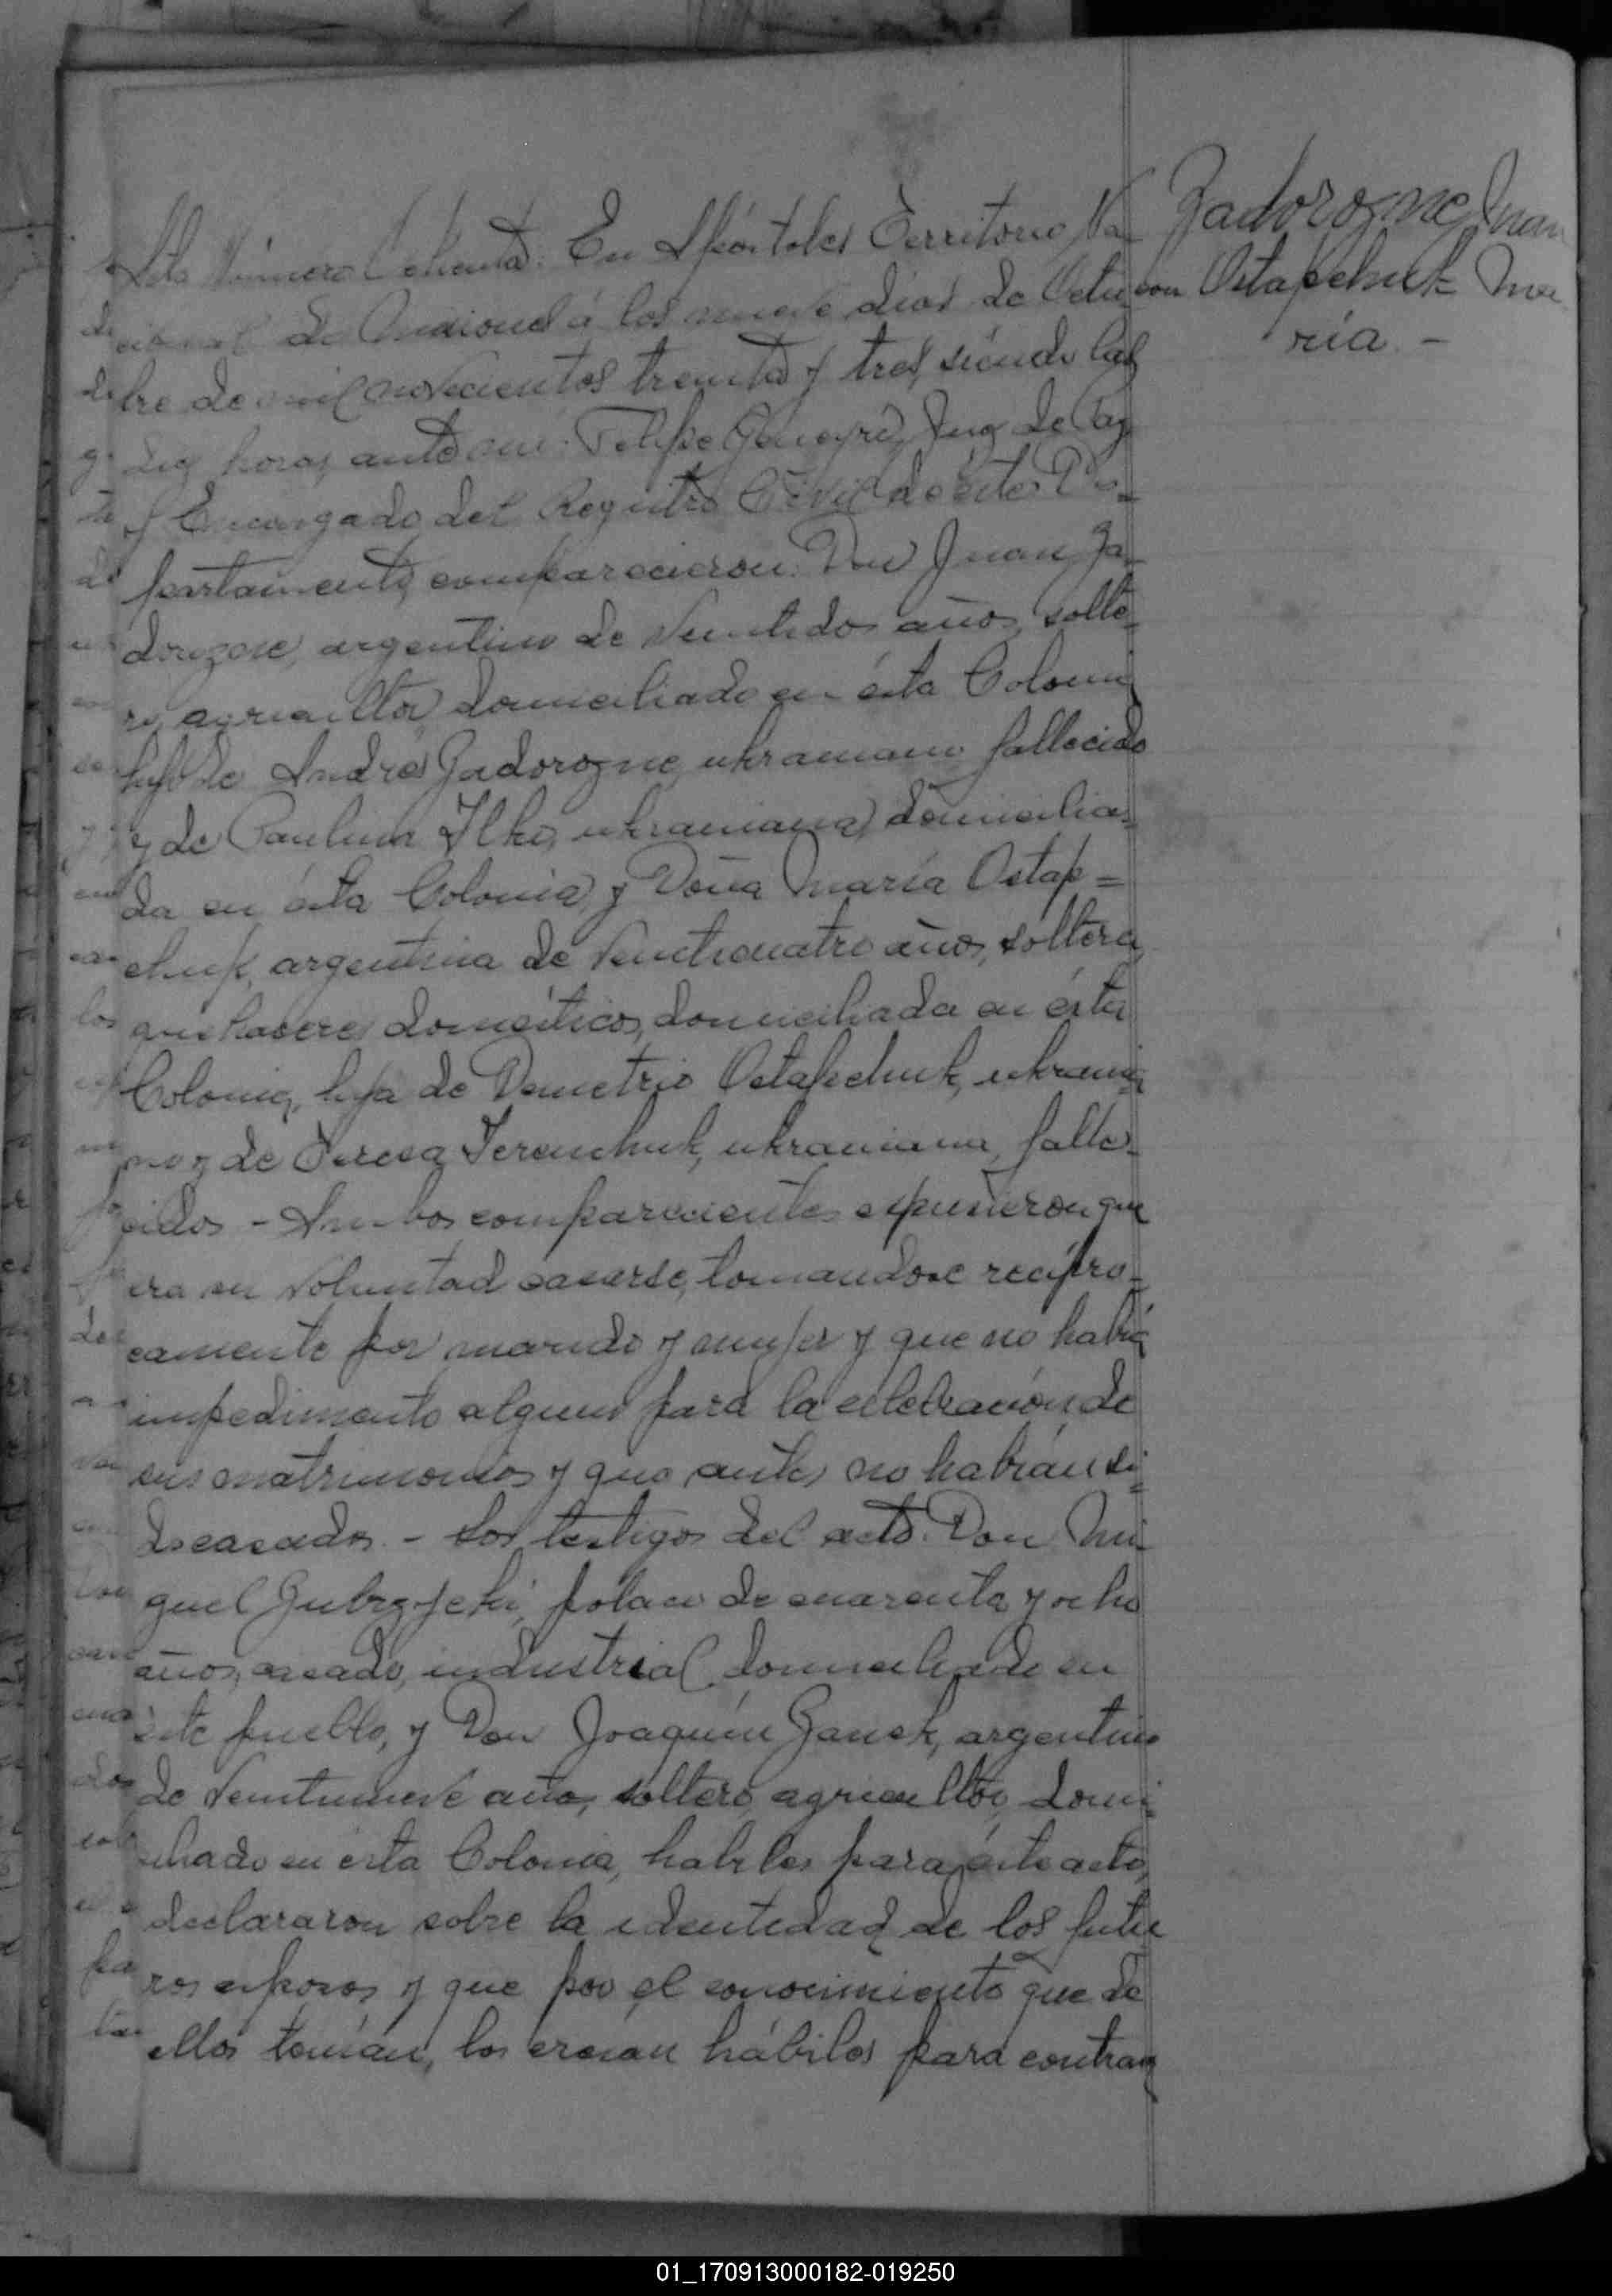 Zadorozne Juan
con Ostapchuk Ma
ría. -
Acta Número Ochenta. En Apóstoles Territorio Na
cional de Misiones á los nueve dias de Octu
bre de mil novecientos treinta y tres, siendo las
diez horas, ante mi: Felipe Juez de Paz
y Encargado del Registro Civil de éste De=
partamento, comparecieron: Don Juan Za
dorozne, argentino de veintidos años, solte=
ro, agricultor, domiciliado en ésta Colonia
hijo de Andrés Zadorozne, ukraniano fallecido
y de Paulina Ilko, ukraniana, domicilia=
da en ésta Colonia, y Doña María Ostap=
chuk, argentina de veinticuatro años, soltera,
quehaceres domésticos, domiciliada en ésta
Colonia, hija de Demetrio Ostapchuk, ukrania=
no y de Teresa Terenchuk, ukraniana, falle=
cidos - Ambos comparecientes expusieron que
era su voluntad casarse, tomandose recípro=
camente por marido y mujer y que no había
impedimento alguno para la celebración de
sus matrimonios y que antes no habían si=
do casados. - Los testigos del acto: Don Mi
guel polaco de cuarenta y ocho
años, casado, industrial, domiciliado en
éste pueblo, y Don Joaquín Ganek, argentino
de veintinueve años, soltero, agricultor, domi=
ciliado en ésta Colonia, habiles para éste acto,
declararon sobre la identidad de los futu
ros esposos y que por el conocimiento que de
ellos tenían, los creían hábiles para contraer
01_170913000182-019250